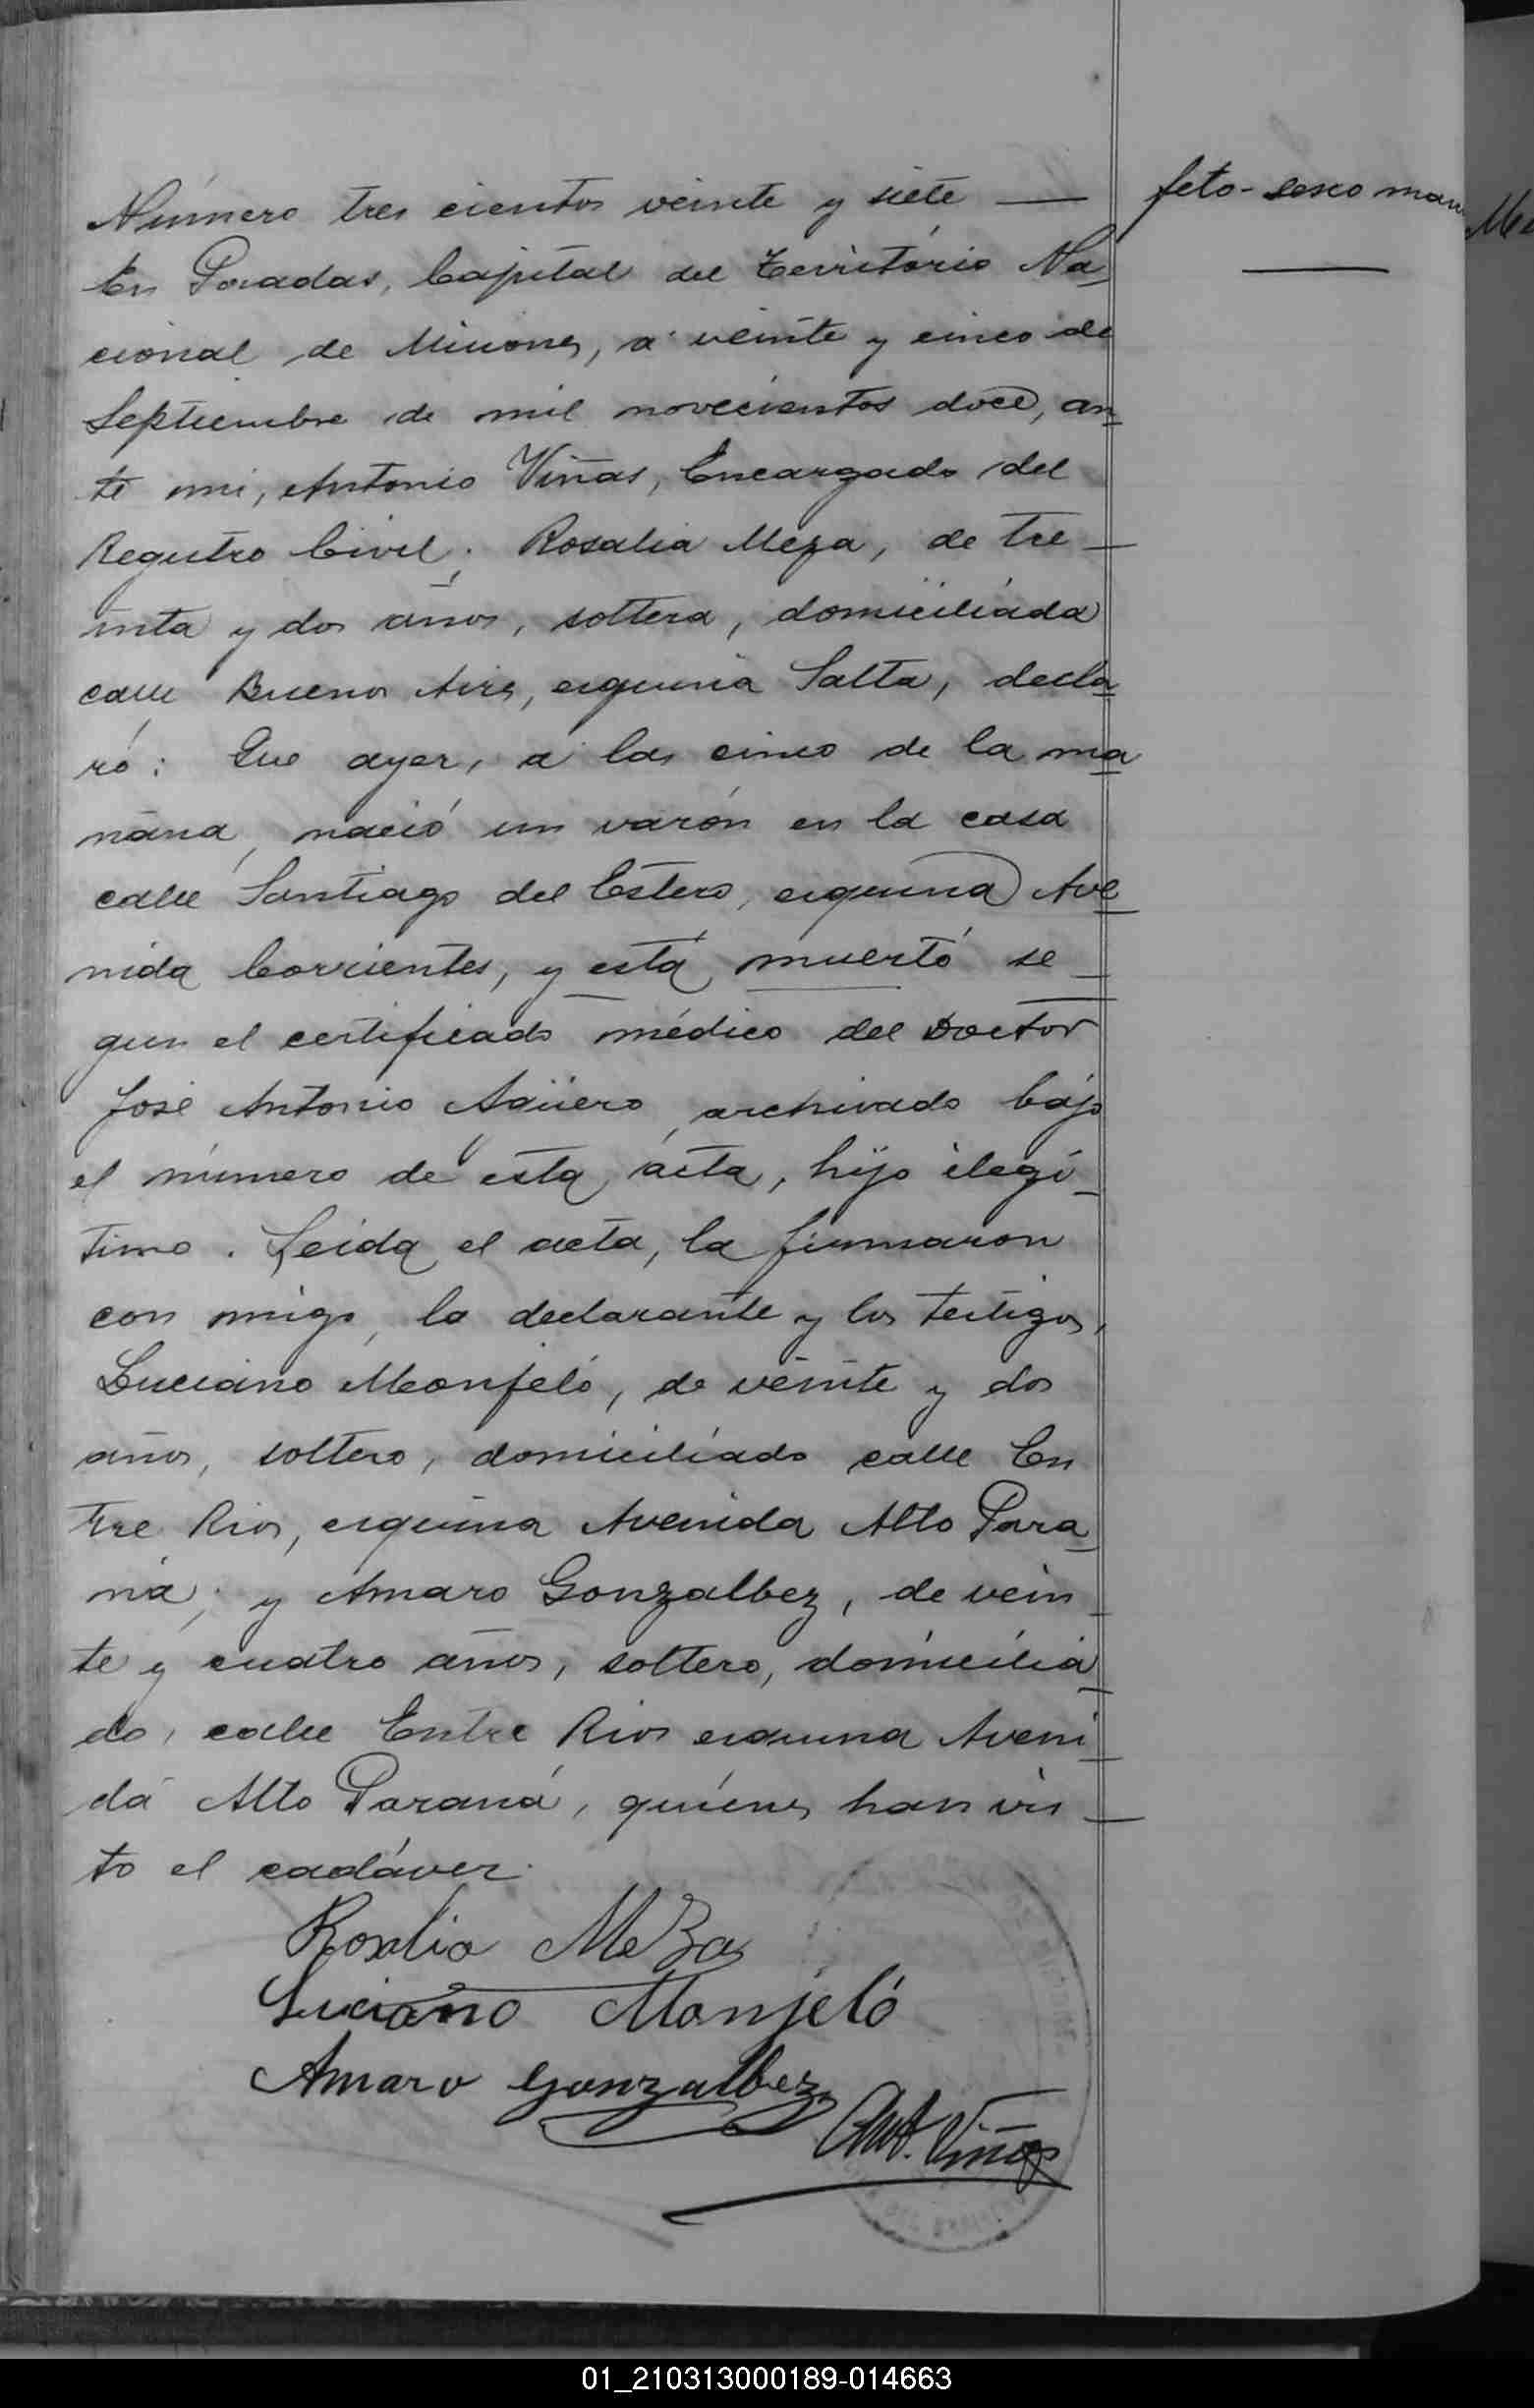 Número tres cientos veinte y siete —
feto - sexo mas
En Posadas, Capital del Territorio Na
cional de Misiones, a veinte y cinco de
Septiembre de mil novecientos doce, an
te mi, Antonio Viñas, Encargado del
Registro Civil; Rosalia Meza, de tre
inta y dos años, soltera, domiciliada
calle Buenos Aires, esquina Salta, decla
ró: Que ayer, a las cinco de la ma
ñana, nació un varón en la casa
calle Santiago del Estero, esquina Ave
nida Corrientes, y está muerto se
gun el certificado médico del Doctor
José Antonio Agüero, archivado bajo
el número de esta acta, hijo ilegi
timo. Leida el acta, la firmaron
con migo, la declarante y los testigos,
Luciano Monjeló, de veinte y dos
años, soltero, domiciliado calle En
tre Rios, esquina Avenida Alto Para
ná; y Amaro Gonzalbez, de vein
te y cuatro años, soltero, domicilia
do, calle Entre Rios esquina Aveni
da Alto Paraná, quienes han vis
to el cadáver.
Rosalia MeZa
Luciano Monjeló
Amaro Gonzalbez
Ant. Viñas
01_210313000189-014663